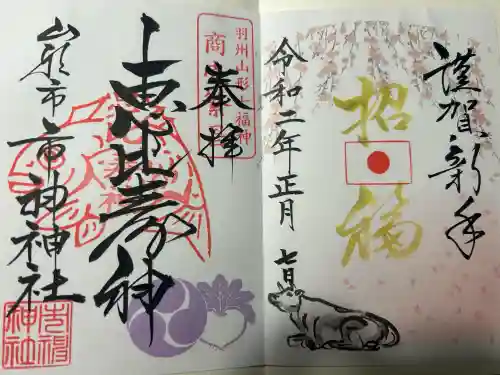 謹賀新年
招福
令和二年正月
七日
羽州山形七福神
商
奉拝
恵比寿神
山形市
市神神社
市神神社